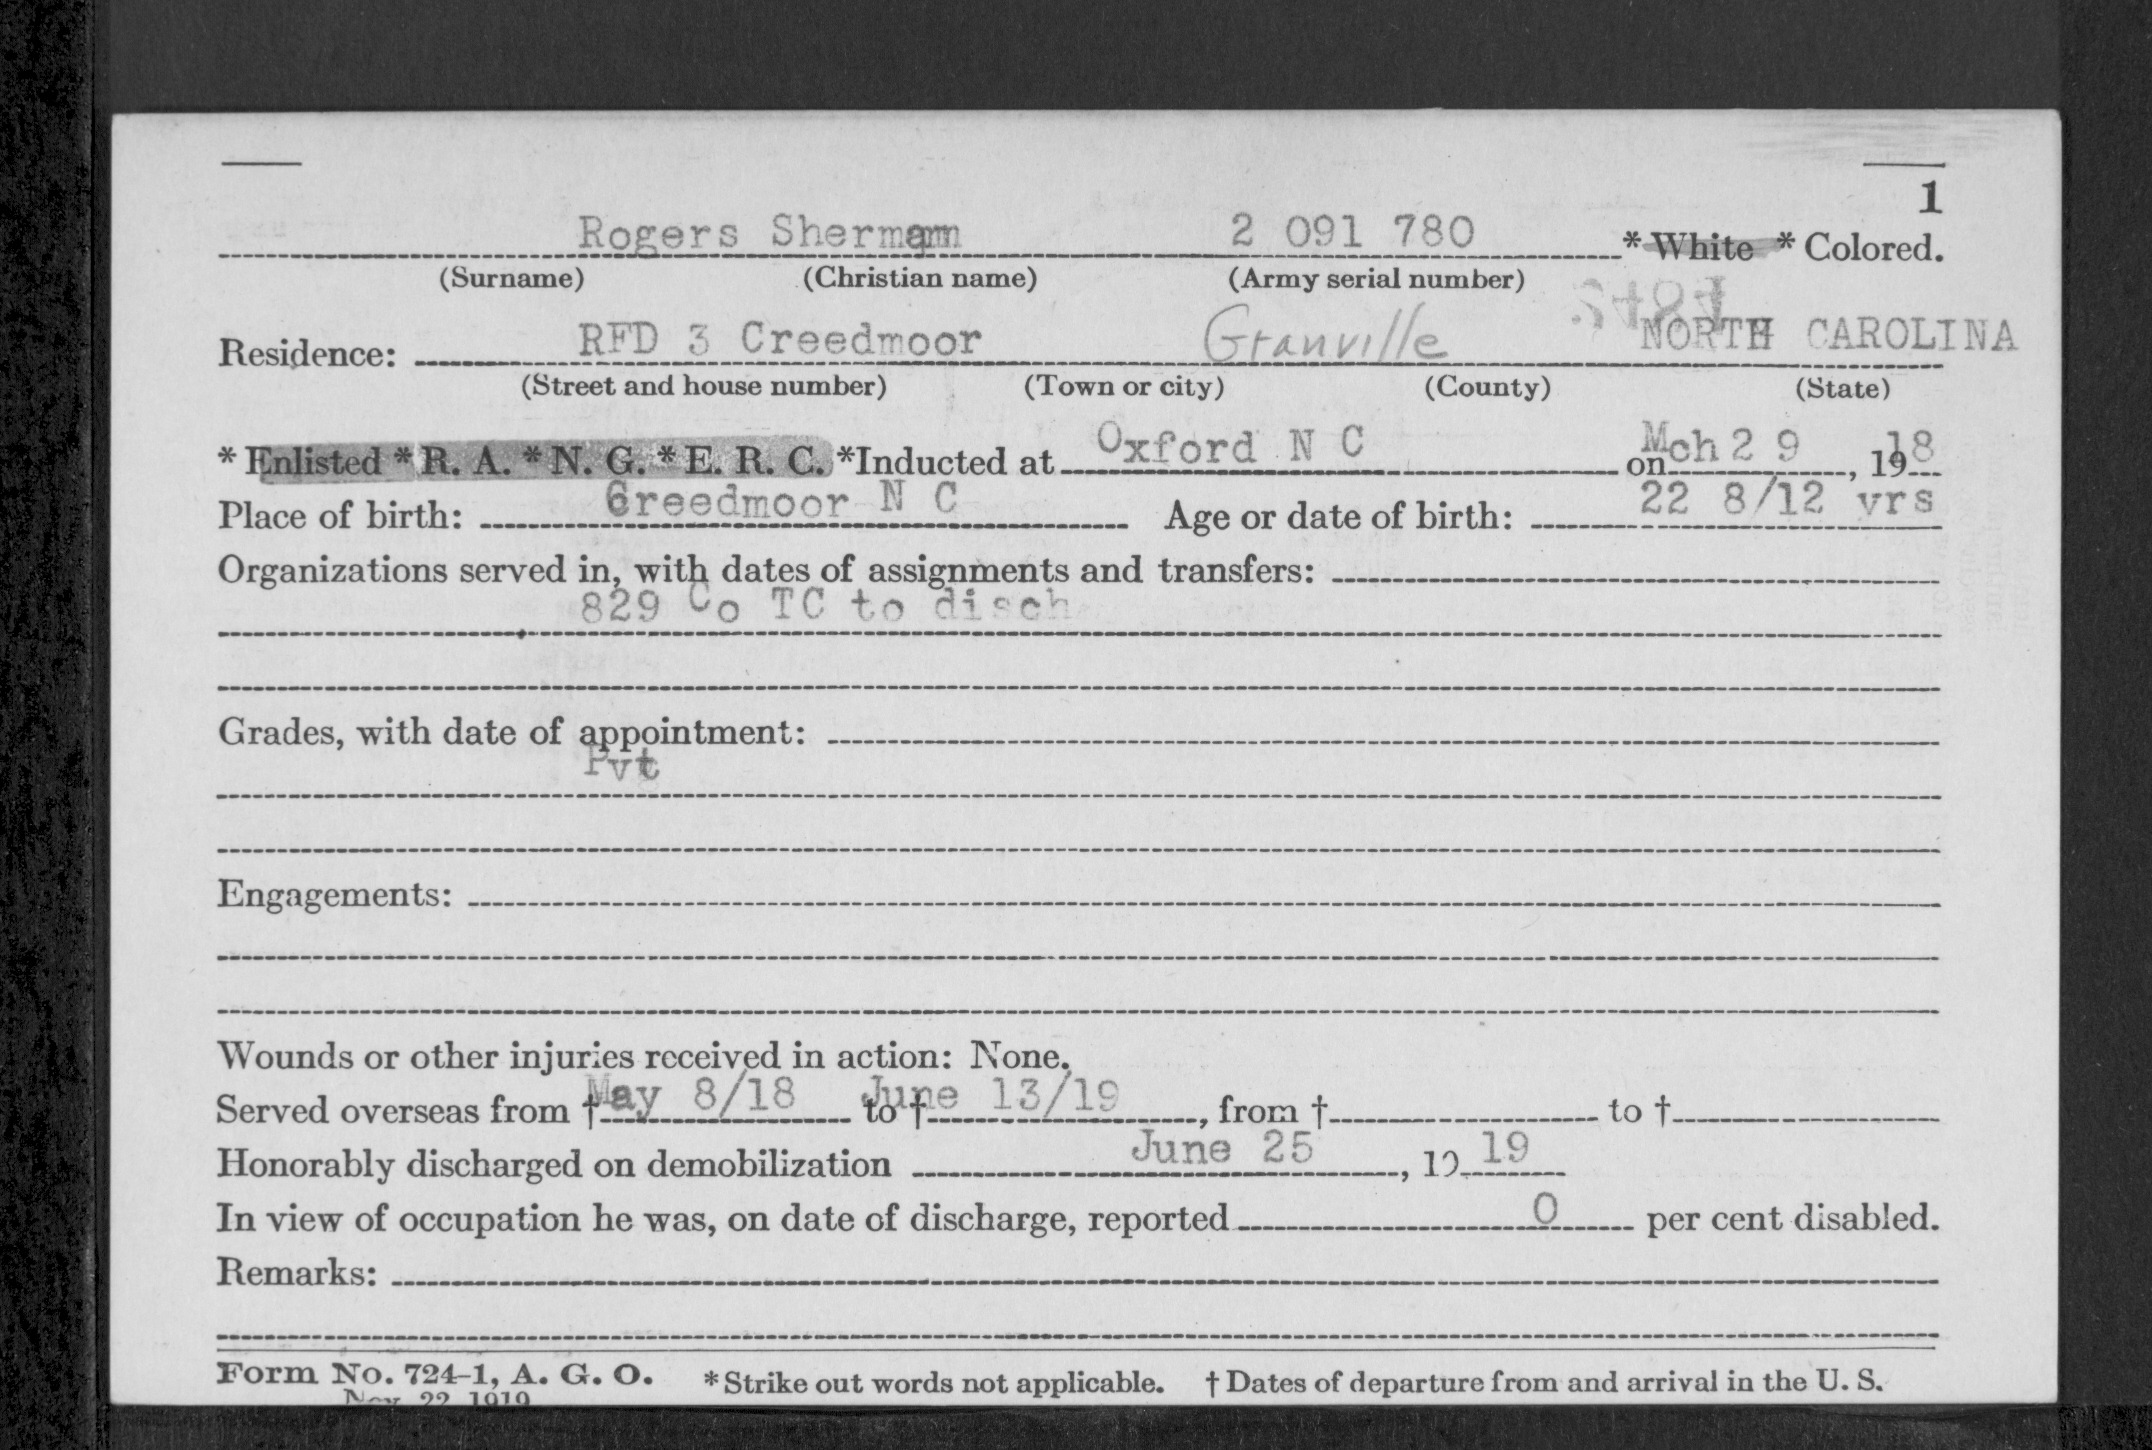 1
Rogers Sherman 2 091 780 * White * Colored.
(Surname) (Christian name) (Army serial number)
Residence: RFD 3 Creedmoor Granville NORTH CAROLINA
(Street and house number) (Town or city) (County) (State)
* Enlisted * R. A. * N. G. * E. R. C. *Inducted at Oxford N C on Mch 2 9, 1918
Place of birth: Creedmoor N C Age or date of birth: 22 8/12 yrs
Organizations served in, with dates of assignments and transfers:
829 Co TC to disch
Grades, with date of appointment:
Pvt
Engagements:
Wounds or other injuries received in action: None.
Served overseas from † May 8/18 to † June 13/19, from † to †
Honorably discharged on demobilization June 25, 19 19
In view of occupation he was, on date of discharge, reported 0 per cent disabled.
Remarks:
Form No. 724-1, A. G. O. * Strike out words not applicable. † Dates of departure from and arrival in the U. S.
Nov 22 1919